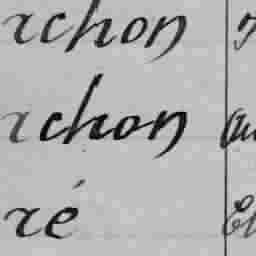 rchon
rchon
ré